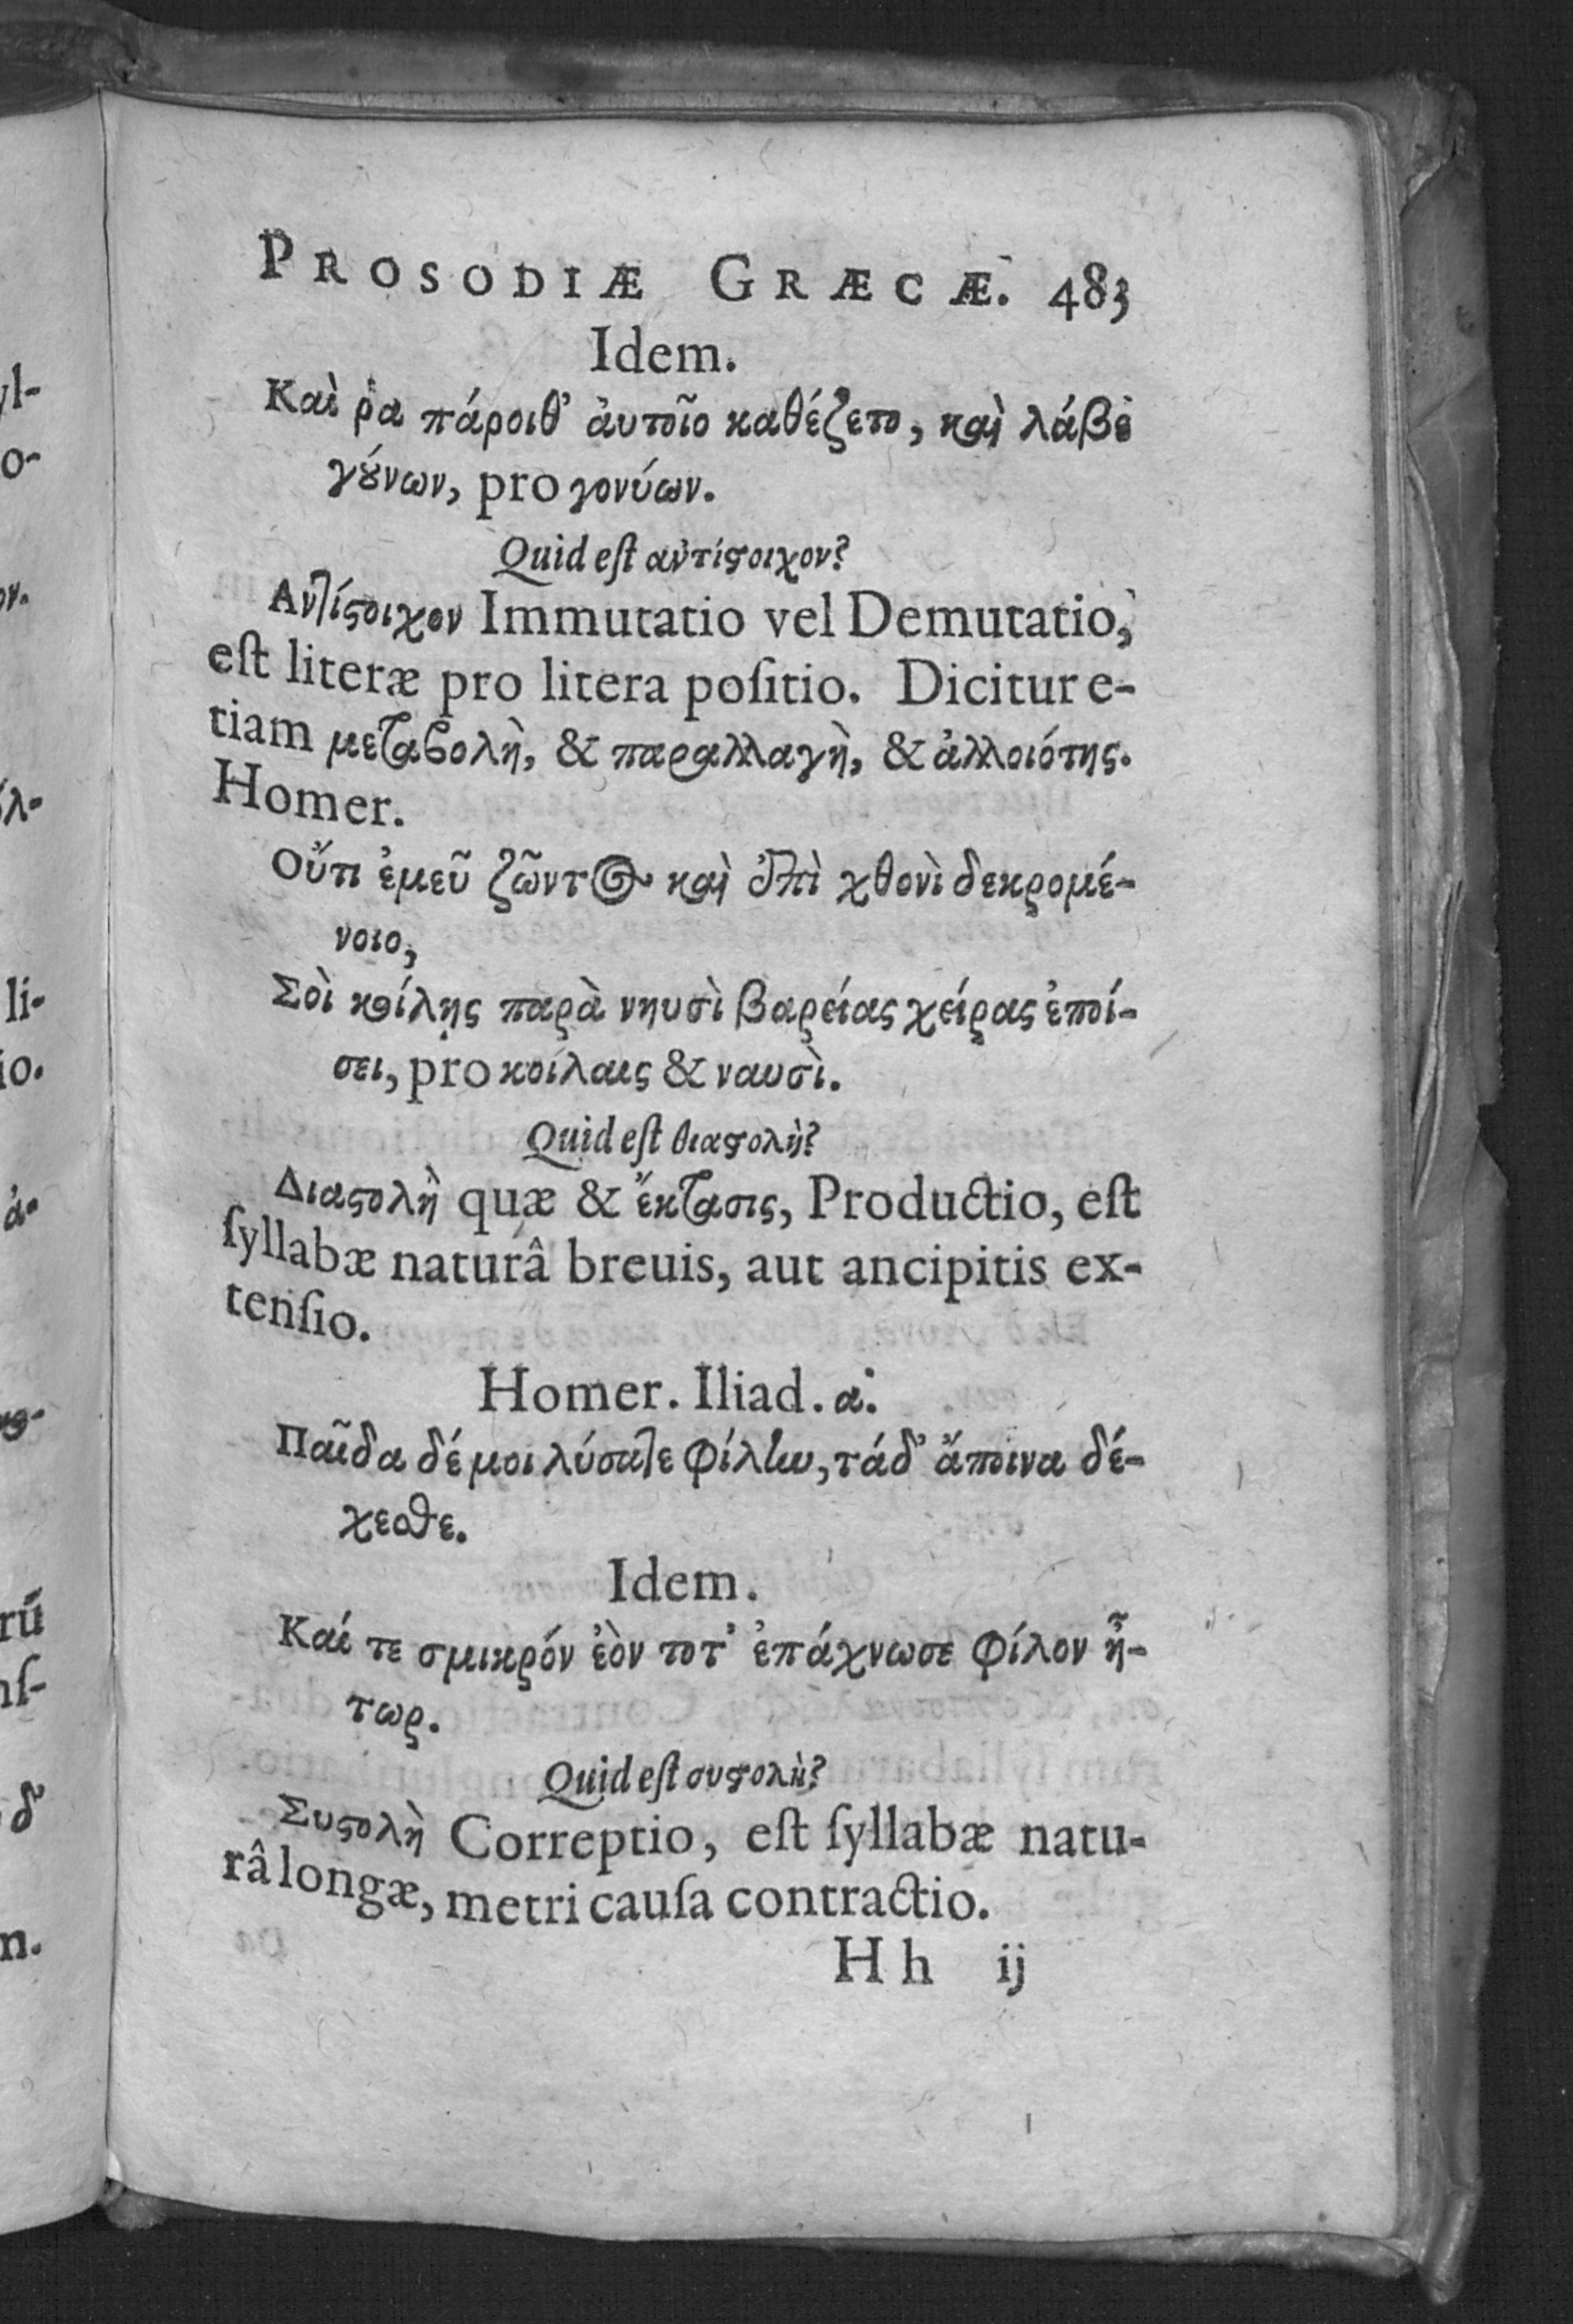 PROSODIÆ GRÆCÆ. 483
Idem.
Καὶ ῥα πάροιθ᾽ ἀυτοῖο καθέζετο, καὶ λάβε
γούνων, pro γονύων.
Quid eſt αντίςοιχον?
Αντίςοιχον Immutatio vel Demutatio,
eſt literæ pro litera poſitio. Dicitur e-
tiam μεταβολὴ, & παραλλαγὴ, & ἀλλοιότης.
Homer.
Οὔτι ἐμεῦ ζῶντος καὶ ἐπὶ χθονὶ δεκρομέ-
νοιο,
Σοὶ κοίλῃς παρὰ νηυσὶ βαρείας χείρας ἐποί-
σει, pro κοίλαις & ναυσὶ.
Quid eſt διαςολὴ?
Διαςολὴ quæ & ἔκτασις, Productio, eſt
ſyllabæ naturâ breuis, aut ancipitis ex-
tenſio.
Homer. Iliad. α.
Παῖδα δέ μοι λύσατε φίλην, τάδ᾽ ἄποινα δέ-
χεσθε.
Idem.
Καί τε σμικρόν ἐὸν τοτ᾽ ἐπάχνωσε φίλον ἦ-
τωρ.
Quid eſt συςολὴ?
Συςολὴ Correptio, eſt ſyllabæ natu-
râ longæ, metri cauſa contractio.
Hh ij